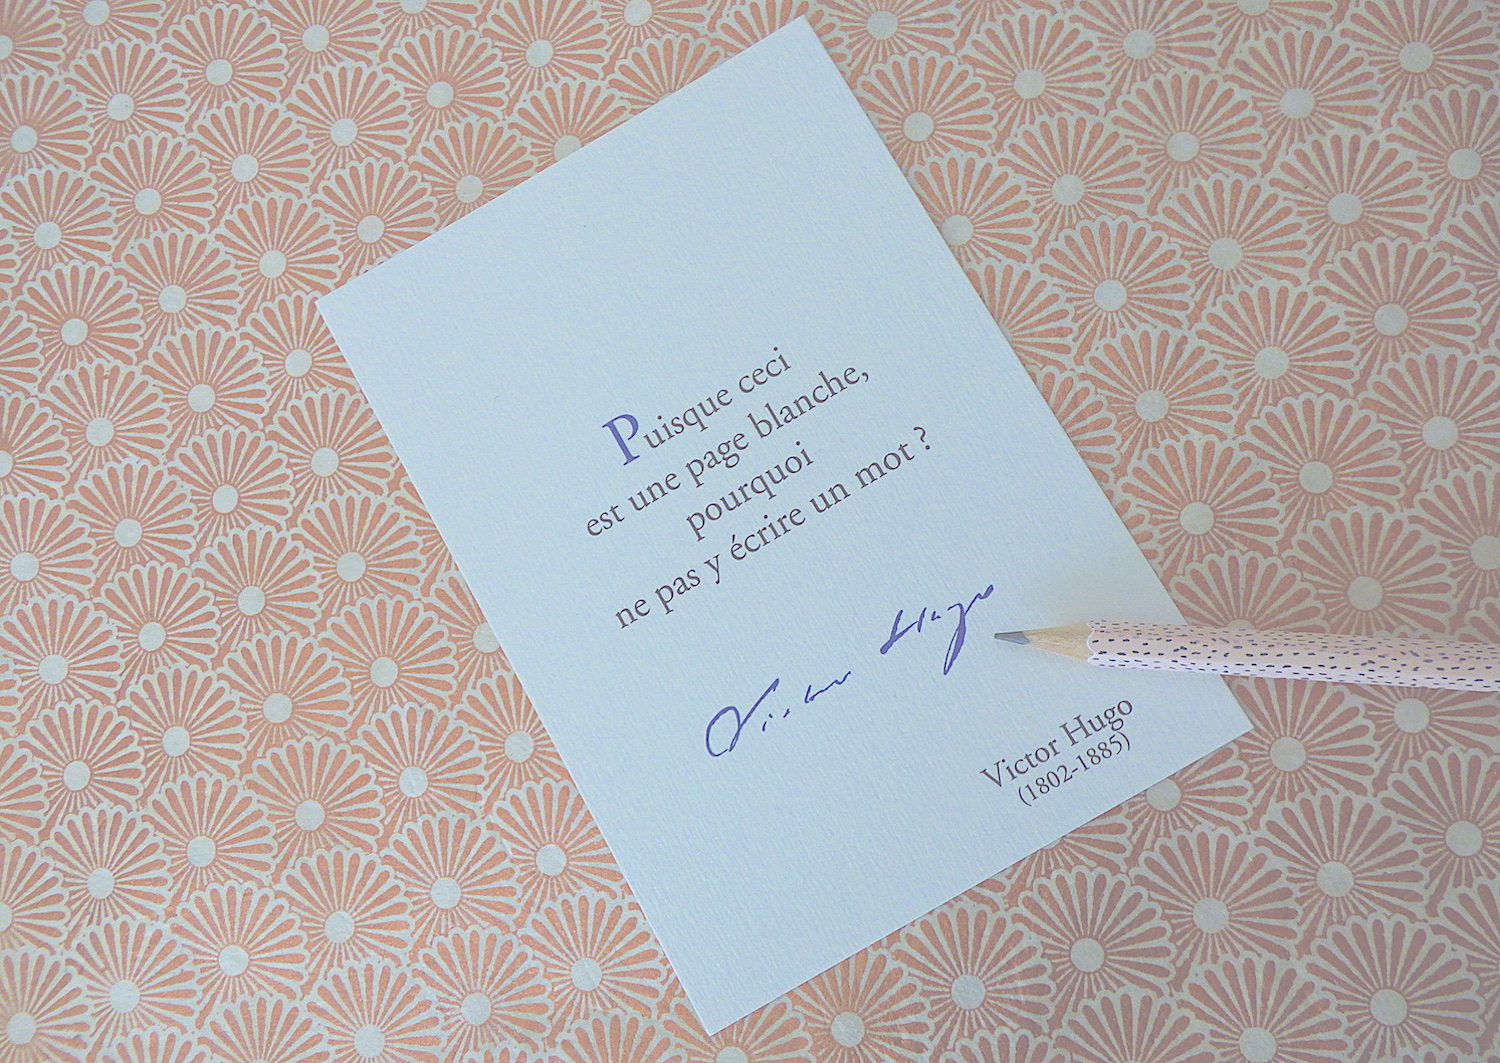 Puisque ceci
est une page blanche,
pourquoi
ne pas y écrire un mot ?
Victor Hugo
Victor Hugo
(1802-1885)